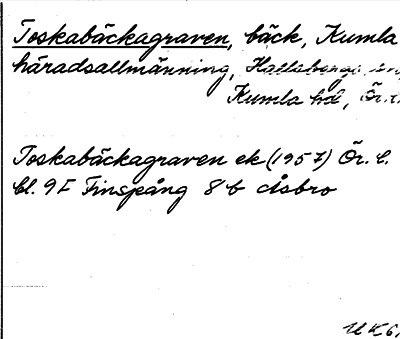 Toskabäckagraven, bäck, Kumla
häradsallmänning, Hallsbergs
Kumla hd, Ör.
Toskabäckagraven ek (1957) Ör. l.
bl. 9F Finspång 8 b Åsbro